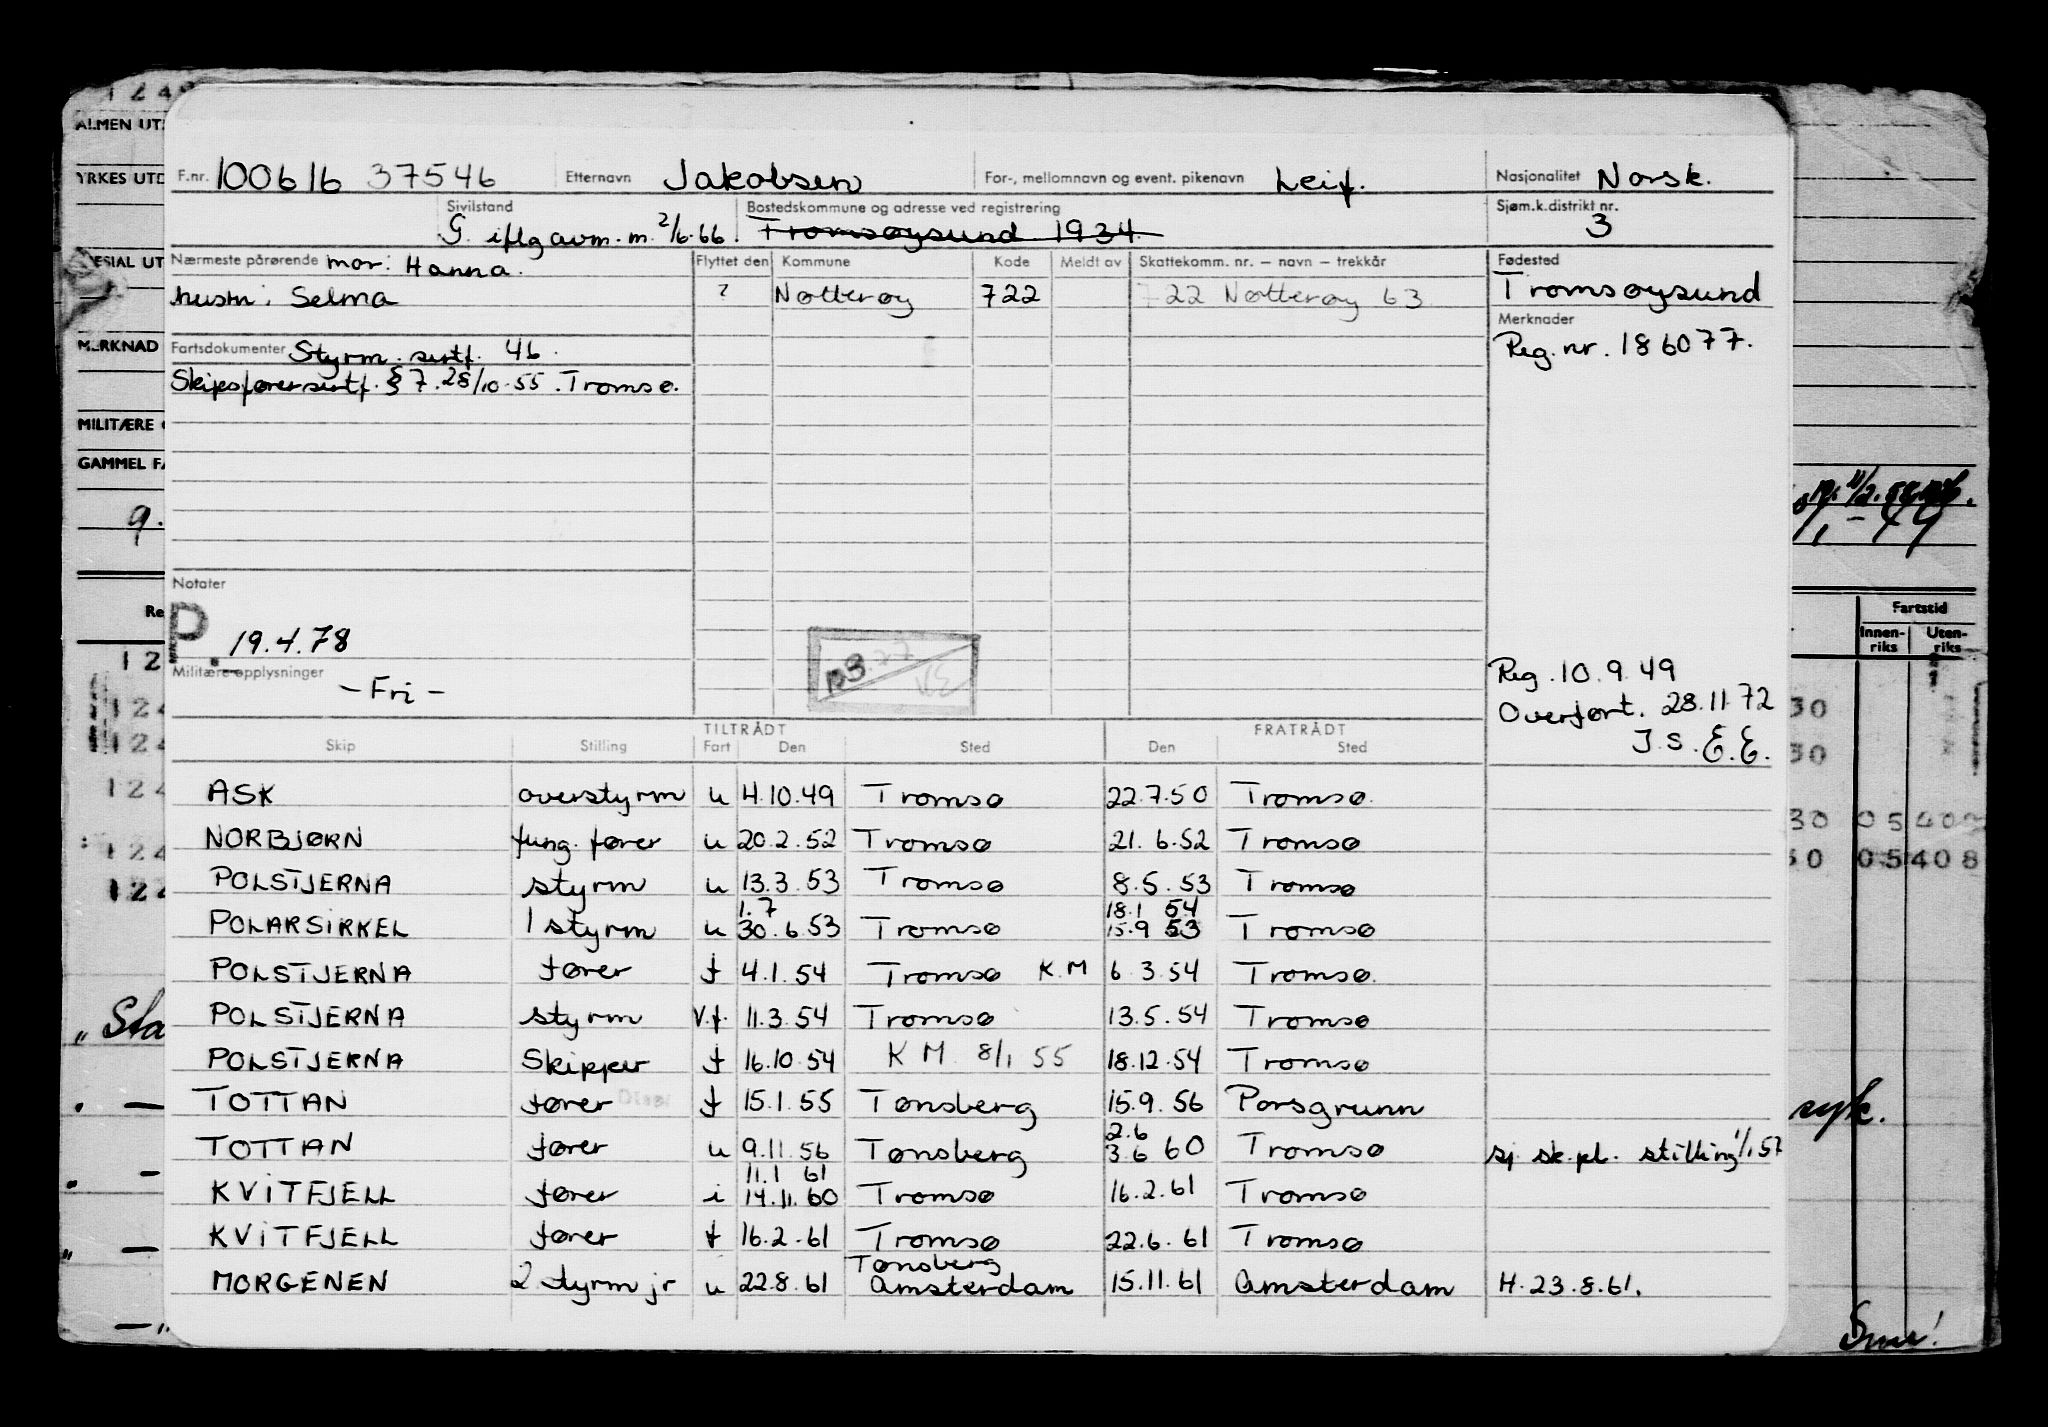 ALMEN UT
YRKES UTD
F.nr. 100616 37546 Etternavn Jakobsen For-, mellomnavn og event. pikenavn Leif. Nasjonalitet Norsk.
Sivilstand G. iflg avm. m. 2/6.66. Bostedskommune og adresse ved registrering Tromsøysund 1934. Sjøm.k.distrikt nr. 3
Nærmeste pårørende mor: Hanna. Flyttet den Kommune Kode Meldt av Skattekomm. nr. – navn – trekkår Fødested
hustr: Selma ? Nøtterøy 722 722 Nøtterøy 63 Tromsøysund
Merknader
MERKNAD Fartsdokumenter Styrm. sertf. 46. Reg. nr. 186077.
Skipsførersertf. § 7. 28/10.55. Tromsø.
MILITÆRE
GAMMEL FA
9.
Notater
P. 19.4.78
Militære opplysninger
– Fri –
Reg. 10.9.49
Overført. 28.11.72
J.S. E.E.
Fartstid
Innen-riks Uten-riks
TILTRÅDT FRATRÅDT
Skip Stilling Fart Den Sted Den Sted
ASK overstyrm u 4.10.49 Tromsø 22.7.50 Tromsø.
NORBJØRN fung. fører u 20.2.52 Tromsø 21.6.52 Tromsø
POLSTJERNA styrm u 13.3.53 Tromsø 8.5.53 Tromsø
1.7 18.1 54
POLARSIRKEL 1 styrm u 30.6.53 Tromsø 15.9 53 Tromsø
POLSTJERNA fører f 4.1.54 Tromsø K.M 6.3.54 Tromsø.
POLSTJERNA styrm v.f. 11.3.54 Tromsø 13.5.54 Tromsø
POLSTJERNA Skipper f 16.10.54 K M. 8/1 55 18.12.54 Tromsø
TOTTAN fører f 15.1.55 Tønsberg 15.9.56 Porsgrunn
2.6
TOTTAN fører u 9.11.56 Tønsberg 3.6 60 Tromsø sj.sk.pl. stilling 1/1 57
11.1 61
KVITFJELL fører i 14.11.60 Tromsø 16.2.61 Tromsø
KVITFJELL fører f 16.2.61 Tromsø 22.6.61 Tromsø
Tønsberg
MORGENEN 2 styrm jr u 22.8.61 Amsterdam 15.11.61 Amsterdam H. 23.8.61.